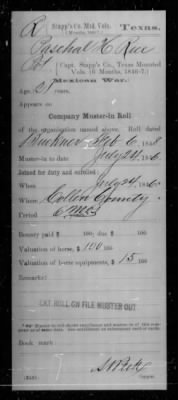 R Stapp's Co. Mtd. Vols. Texas.
(6 Months, 1846-7.)
Paschal H Rice
Pvt { Capt. Stapp's Co., Texas Mounted
Vols. (6 Months, 1846-7.)
Mexican War.
Age 21 years.
Appears on
Company Muster-in Roll
of the organization named above. Roll dated
Feb 6, 1848
Muster-in date July 24, 1846
Joined for duty and enrolled:
When July 24, 1846
Where Collin County
Period 6 mos
Bounty paid $ 100; due $ 100
Valuation of horse, $ 100 100
Valuation of horse equipments, $ 15 100
Remarks:
EXT. ROLL ON FILE MUSTER OUT
Book mark:
Copyist.